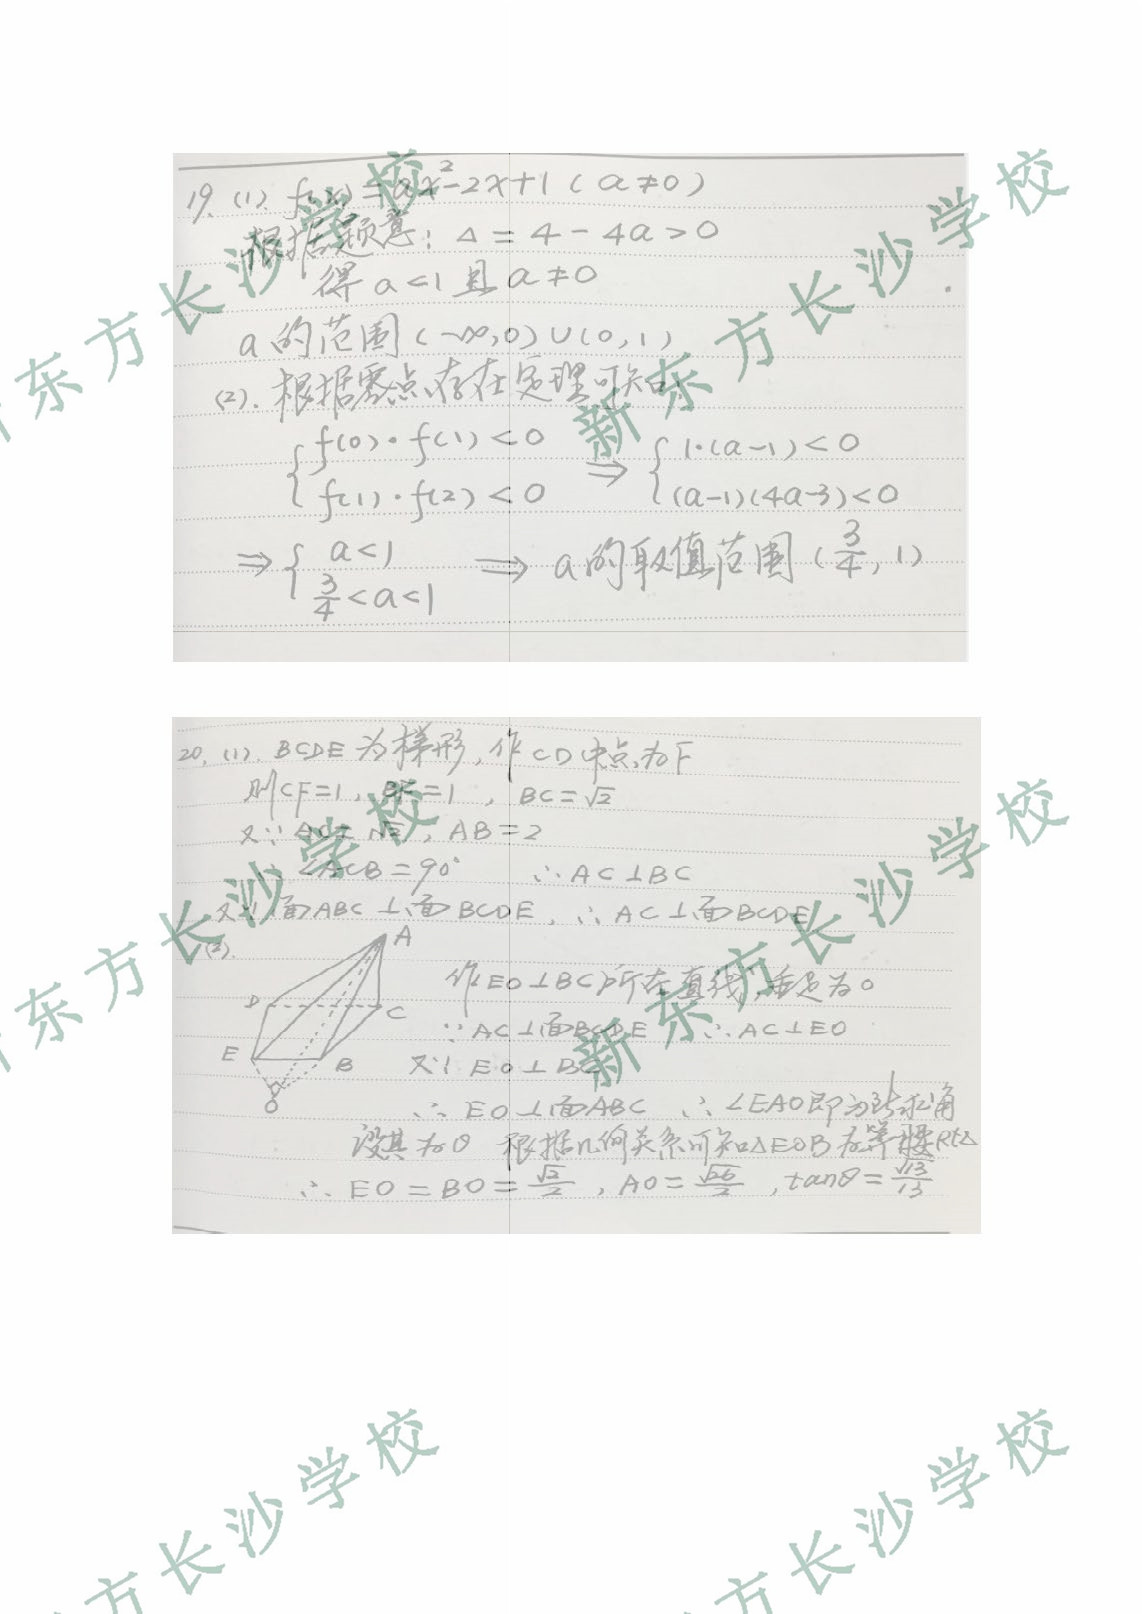 19. (1). f(x) = ax²-2x+1 (a≠0)
根据题意: △ = 4 - 4a > 0
得 a<1 且 a≠0
a的范围 (-∞,0)∪(0,1)
(2). 根据零点存在定理可知:
{ f(0)·f(1)<0 ⇒ { 1·(a-1)<0
f(1)·f(2)<0 (a-1)(4a-3)<0
⇒ { a<1 ⇒ a的取值范围 (3/4, 1)
3/4<a<1
20. (1). BCDE为梯形, 作CD中点为F
则CF=1, BF=1, BC=√2
又∵ AC=√2, AB=2
∴ ∠ACB=90° ∴ AC⊥BC
又∵ 面ABC⊥面BCDE, ∴ AC⊥面BCDE
(2).
A
D
C
E
B
O
作EO⊥BC所在直线, 垂足为O
∵ AC⊥面BCDE ∴ AC⊥EO
又∵ EO⊥BC
∴ EO⊥面ABC ∴ ∠EAO即为所求角
设其为θ 根据几何关系可知△EOB为等腰Rt△
∴ EO = BO = √2/2, AO = √26/2, tanθ = √13/13
新东方长沙学校
新东方长沙学校
新东方长沙学校
新东方长沙学校
方长沙学校
方长沙学校